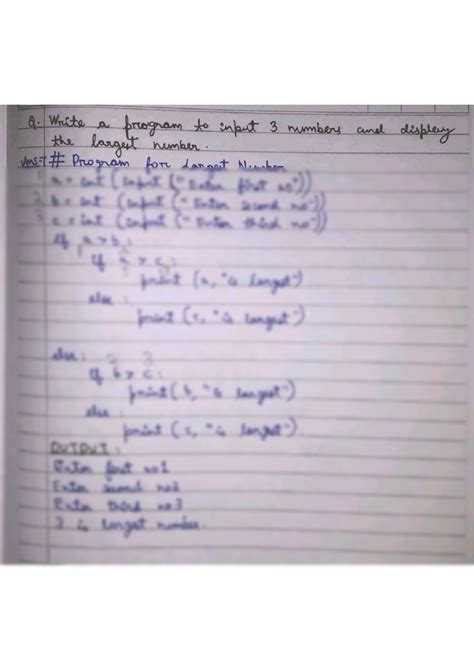 Q. Write a program to input 3 numbers and display
the largest number.
Ans-> # Program for Largest Number
1 a = int (input ("Enter first no"))
2 b = int (input ("Enter second no"))
3 c = int (input ("Enter third no"))
if a > b:
if a > c:
print (a, "is largest")
else:
print (c, "is largest")
else: 2 3
if b > c:
print (b, "is largest")
else
print (c, "is largest")
OUTPUT:
Enter first no1
Enter second no2
Enter third no3
3 is largest number.